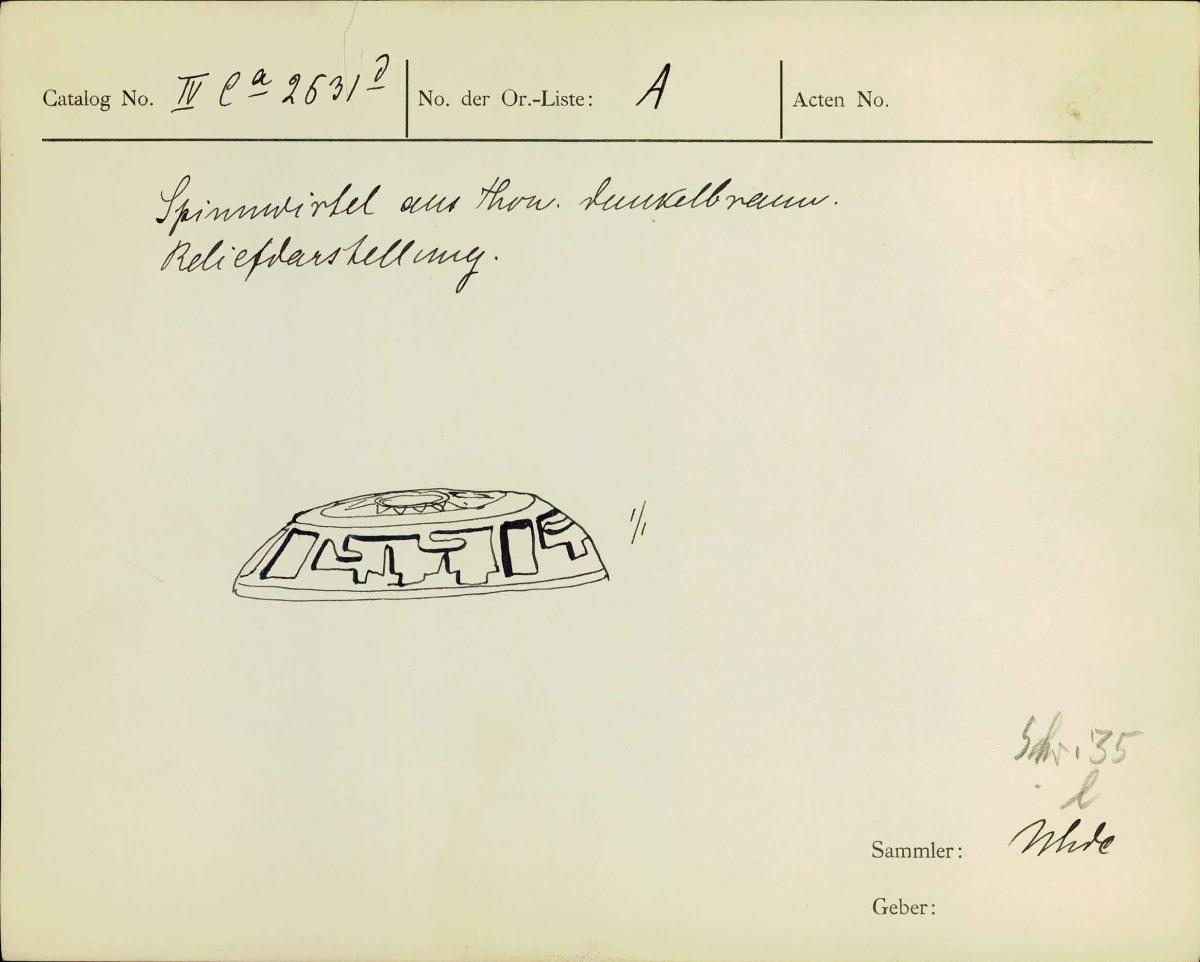 Catalog No. IV Ca 2631 d No. der Or.-Liste: A Acten No.
Spinnwirtel aus Thon. dunkelbraun.
Reliefdarstellung.
1/1
Schr. 35
l
Sammler: Uhde
Geber: